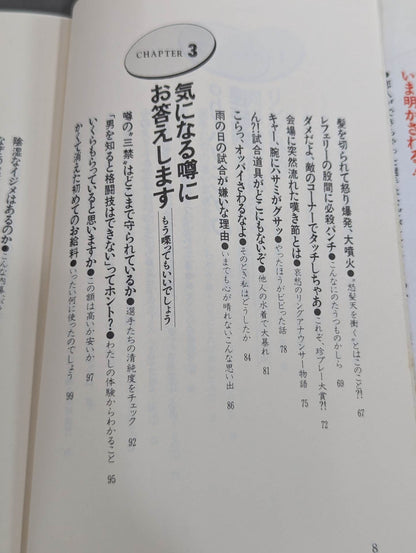 髪を切られて怒り爆発、大噴火●“怒髪天を衝く”とはこのこと?! 67
レフェリーの股間に必殺パンチ●こんなのたうつものかしら 69
ダメだよ、敵のコーナーでタッチしちゃあ●これぞ、珍プレー大賞?! 72
会場に突然流れた嘆き節とは●哀愁のリングアナウンサー物語 75
キャー、腕にハサミがグサッ●やったほうがビビった話 78
ん?!試合道具がどこにもないぞ●他人の水着で大暴れ 81
こらっ、オッパイさわるなよ●そのとき私はどうしたか 84
雨の日の試合が嫌いな理由●いまでも心が晴れないこんな思い出 86
CHAPTER 3
気になる噂に
お答えします
もう喋ってもいいでしょう
噂の“三禁”はどこまで守られているか●選手たちの清純度をチェック 92
「男を知ると格闘技はできない」ってホント?●わたしの体験からわかること 95
いくらもらっていると思いますか●この額は高いか安いか 97
かくて消えた初めてのお給料●いったい何に使ったのでしょう 99
陰湿なイジメはあるのか●こんな内幕
8
いま明かされる